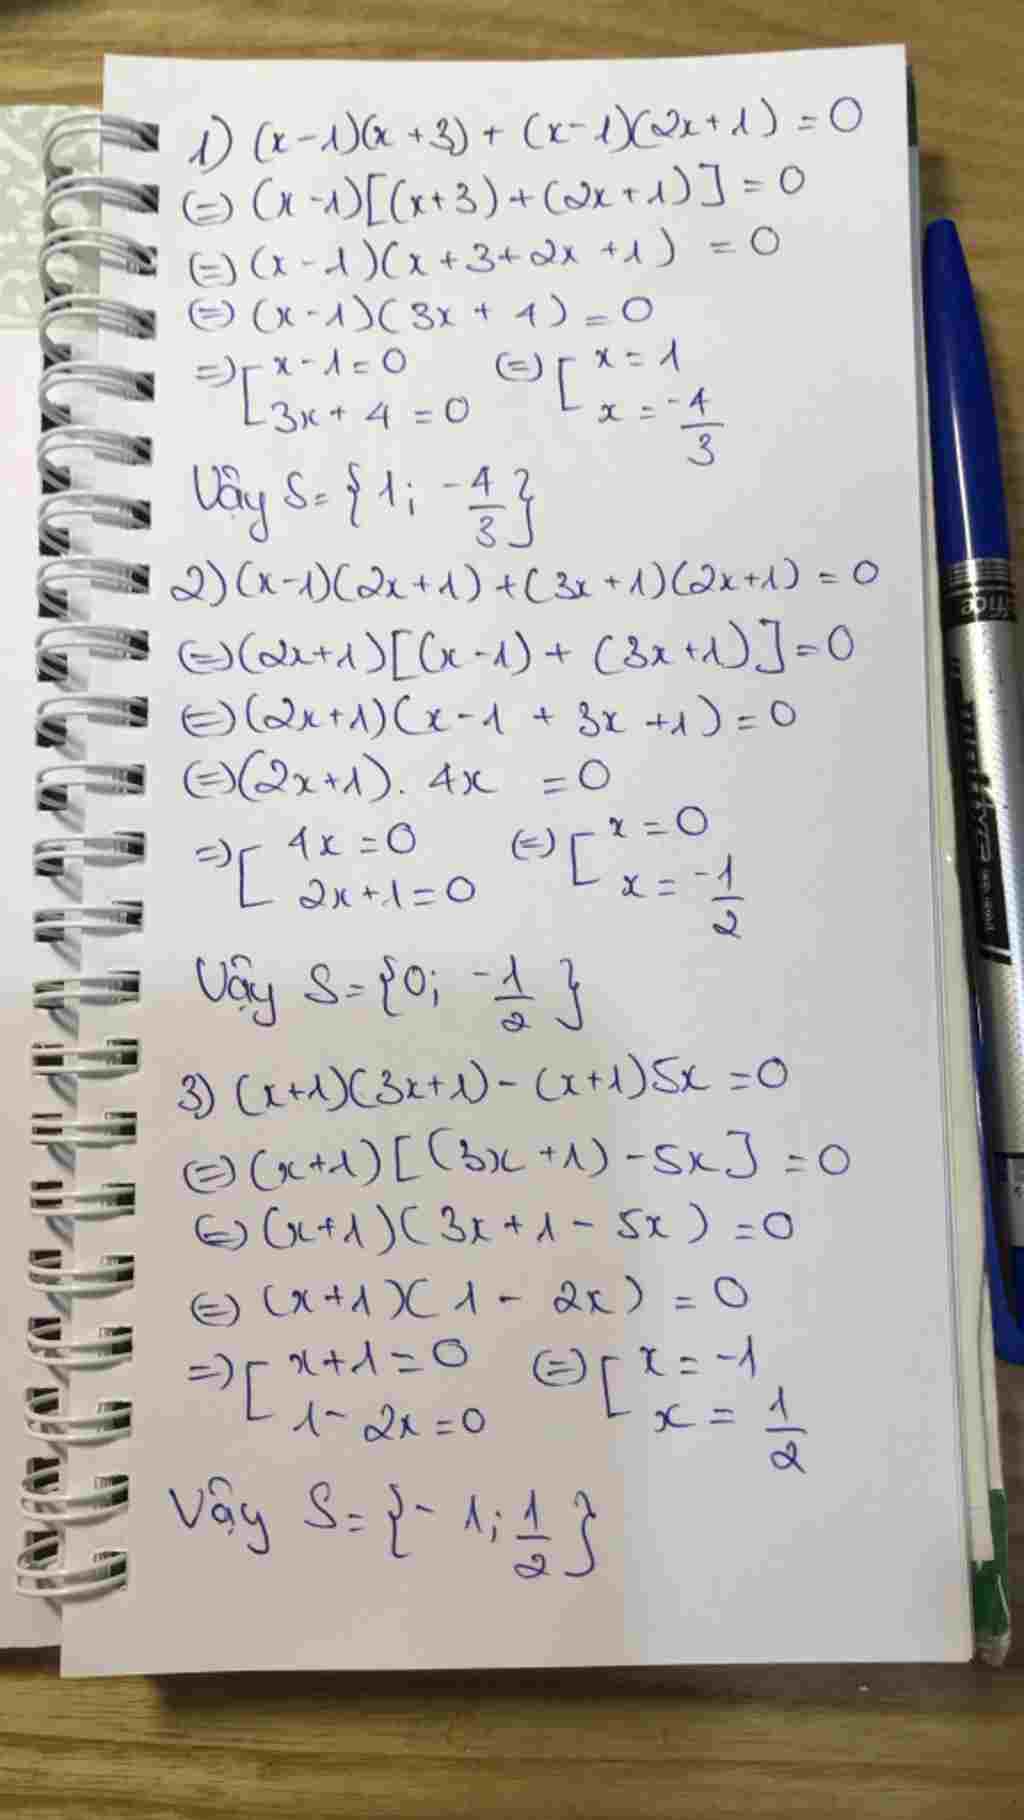 1) (x-1)(x+3)+(x-1)(2x+1)=0
(=) (x-1)[(x+3)+(2x+1)]=0
(=) (x-1)(x+3+2x+1)=0
(=) (x-1)(3x+4)=0
=) [x-1=0 (=) [x=1
3x+4=0 x=-4/3
Vậy S={1; -4/3}
2) (x-1)(2x+1)+(3x+1)(2x+1)=0
(=) (2x+1)[(x-1)+(3x+1)]=0
(=) (2x+1)(x-1+3x+1)=0
(=) (2x+1). 4x =0
=) [4x=0 (=) [x=0
2x+1=0 x=-1/2
Vậy S={0; -1/2}
3) (x+1)(3x+1)-(x+1)5x=0
(=) (x+1)[(3x+1)-5x]=0
(=) (x+1)(3x+1-5x)=0
(=) (x+1)(1-2x)=0
=) [x+1=0 (=) [x=-1
1-2x=0 x=1/2
Vậy S={-1; 1/2}